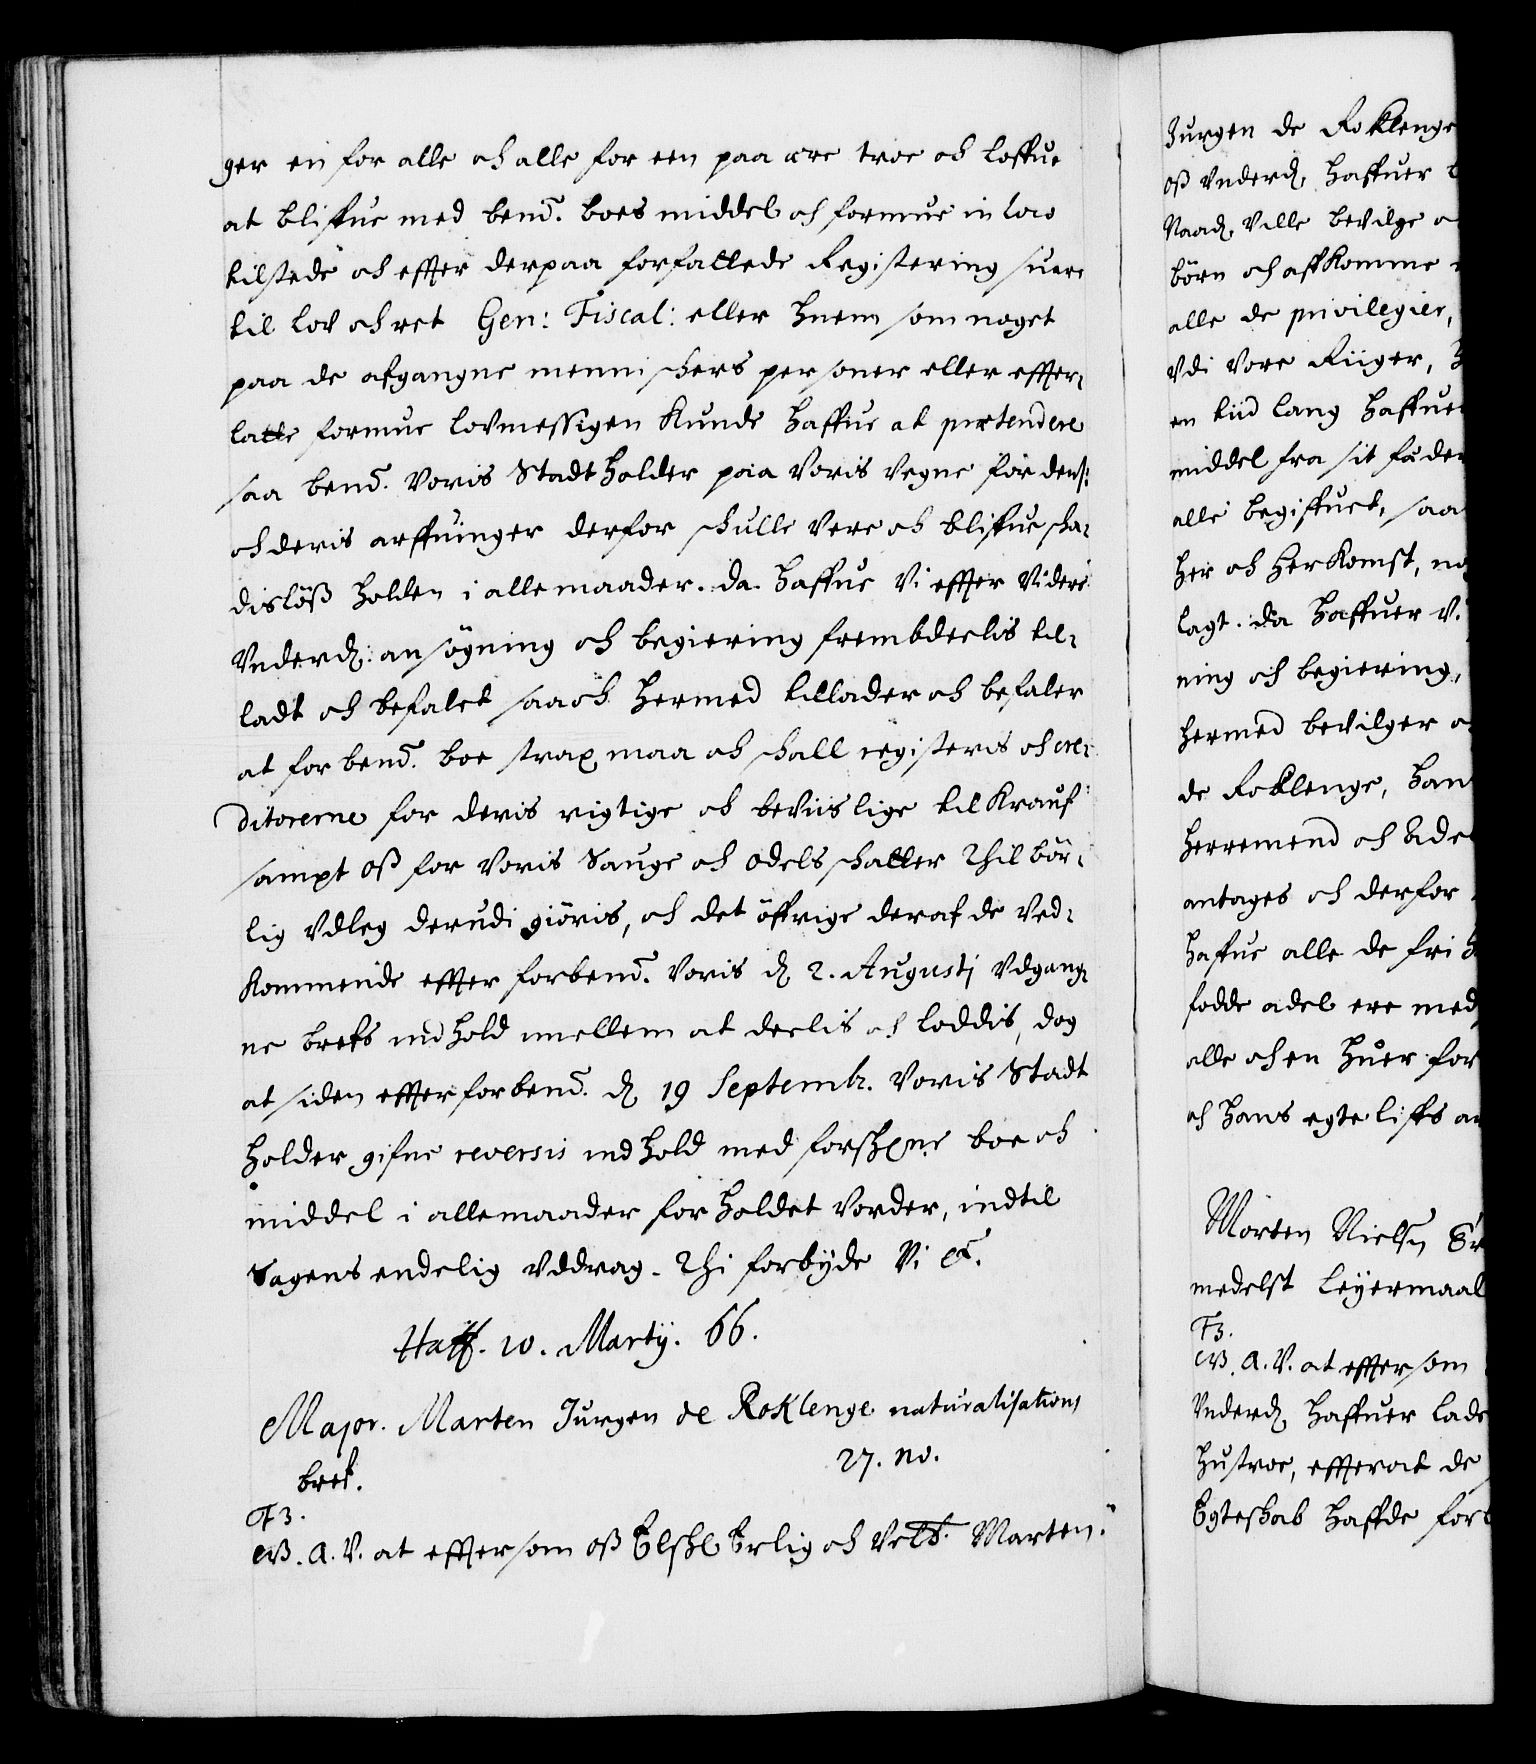 ger en for alle och alle for een paa ære troe och loffue
at bliffue med bend. boes middel och formue in loco
tilstede och effter derpaa forfattede Registering suare
til lov och ret Gen: Fiscal: eller huem som noget
paa de afgangne menniskers personer eller effter-
latte formue lovmessigen kunde haffue at prætendere
saa bend. Voris Stadtholder paa Voris Vegne for dens:
och deris arffuinger derfor schulle Vere och bliffue scha-
disløß holden i alle maader. da haffue Vi effter Videre
Underd: ansøgning och begiering frembdeelis til-
ladt och befalet saa och hermed tillader och befaler
at for bend. boe strax maa och schall registeris och cre-
ditorerne for deris rigtige och beviislige til Krauf
sampt oß for Voris Sauge och odels schatter Thilbør-
lig Vdleg derudi giøris, och det øffrige deraf de Ved-
kommende effter forbend. Voris d. 2. Augustj Vdgang-
ne brefs indhold imellem at deelis och loddis, dog
at siden effter forbend. d. 19 Septembr. Voris Stadt
holder gifne reversis indhold med forschne boe och
middel i alle maader forholdet Vorder, indtil
Sagens endelig Vddrag. Thi forbyde Vi etc.
Haff. 10. Martij. 66.
Major. Marten Jurgen de Roklenge naturalisations
bref. 27. no.
F3.
G.A.V. at effter som oß Elschl Erlig och Velb. Marten
Jurgen de Roklenge
oß Underd. haffuer
Naad. Ville bevilge
børn och affkomme
alle de privilegier,
Vdi Vore Riiger,
en tiid lang haffuer
middel fra sit fæder
alle begiffuet, saa
her och herkomst,
lagt. da haffuer V.
ning och begiering,
hermed bevilger
de Roklenge, han
herremend och Adel
antages och derfor
haffue alle de fri
fødde adel ere med
alle och en huer for
och hans egte liffs
Morten Nielsen
medelst Leyermaal
F3.
G.A.V. at effter som
Underd. haffuer lade
hustroe, effterat de
Egteskab haffde